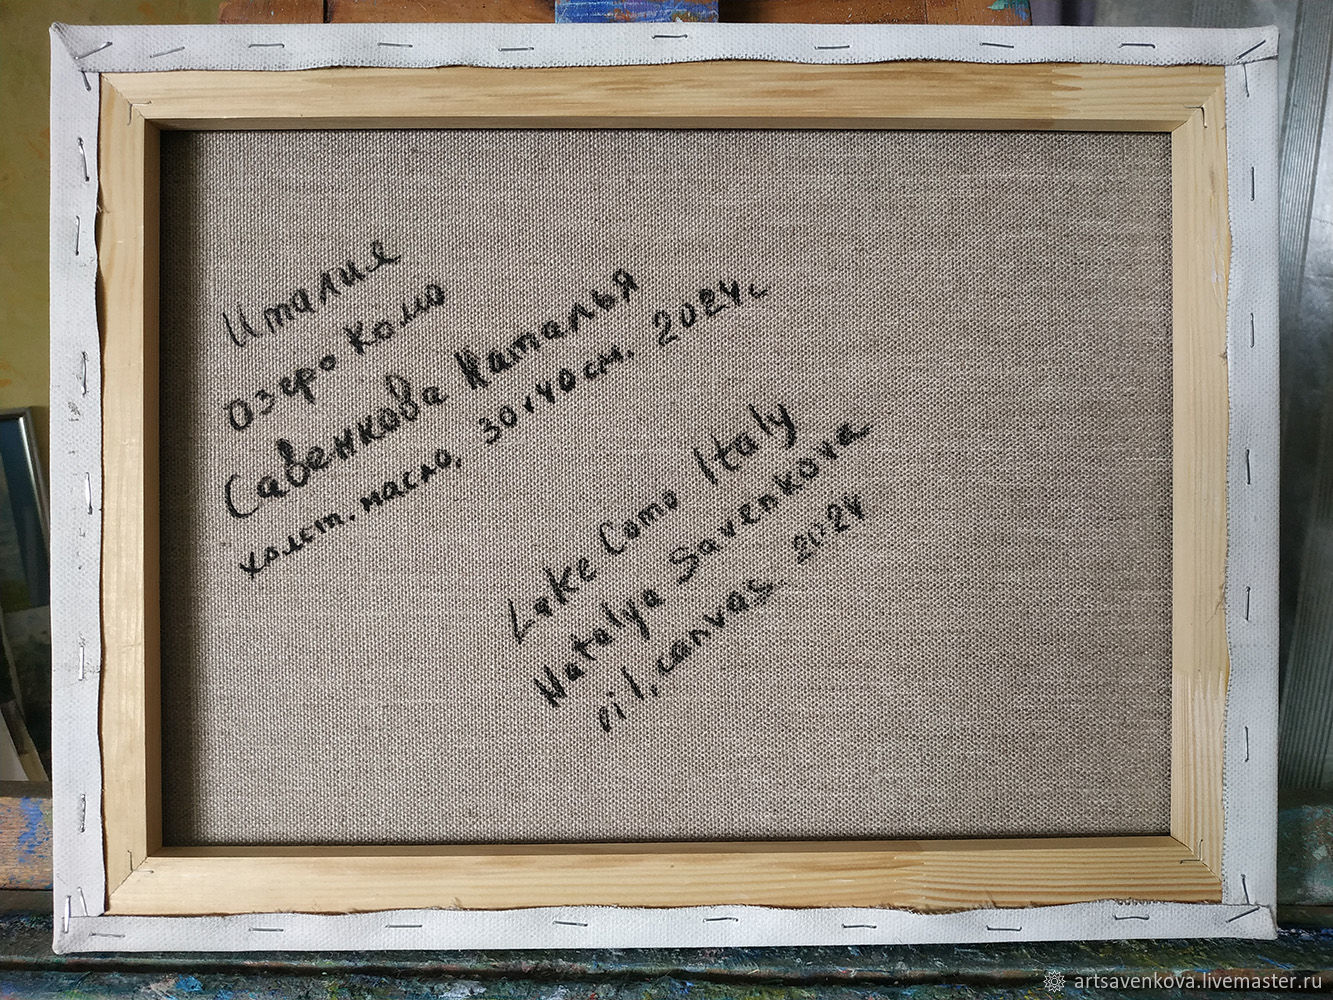 Италия
озеро Комо
Савенкова Наталья
холст. масло, 30х40см. 2024г.
Lake Como Italy
Natalya Savenkova
oil, canvas. 2024
artsavenkova.livemaster.ru